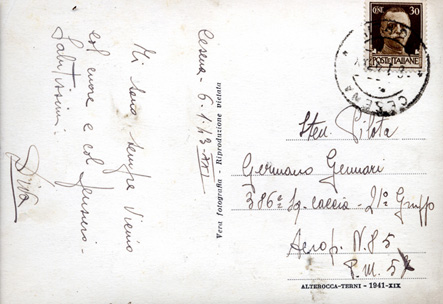 Cesena 6.1.43 XXI
Mi sono sempre vicino
col cuore e col pensiero -
Salutissimi
Dina
Vera fotografia - Riproduzione vietata
CENT. 30
POSTE ITALIANE
CESENA
Sten. Pilota
Germano Gennari
386ª Sq. caccia - 21º Gruppo
Aerop. N. 85
P.M. 52
ALTEROCCA-TERNI - 1941-XIX